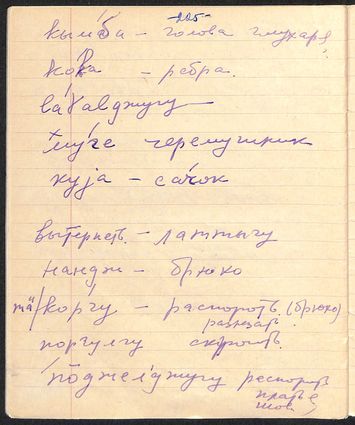 225
кымба – голова глухаря
кова – ребра.
ва́ɣавджугу
тӱ́ге черемушник
куја – сачок
вытереть. – латтыгу
нандж – брюхо
тӓ/коргу – распороть. (брюхо)
разрезать.
поргулгу скроить.
по̄джел'джугу распороть
платье
шов